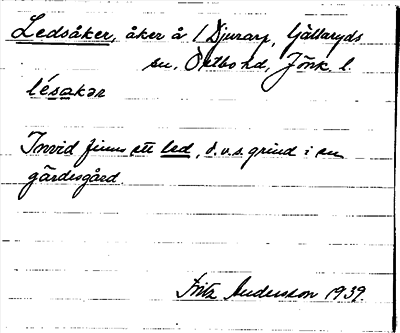 Ledsåker, åker å 1 Djurarp, Gällaryds
sn, Östbo hd, Jönk. l.
lésakər
Invid finns ett led, d.v.s. grind i en
gärdesgård.
Fritz Andersson 1939.